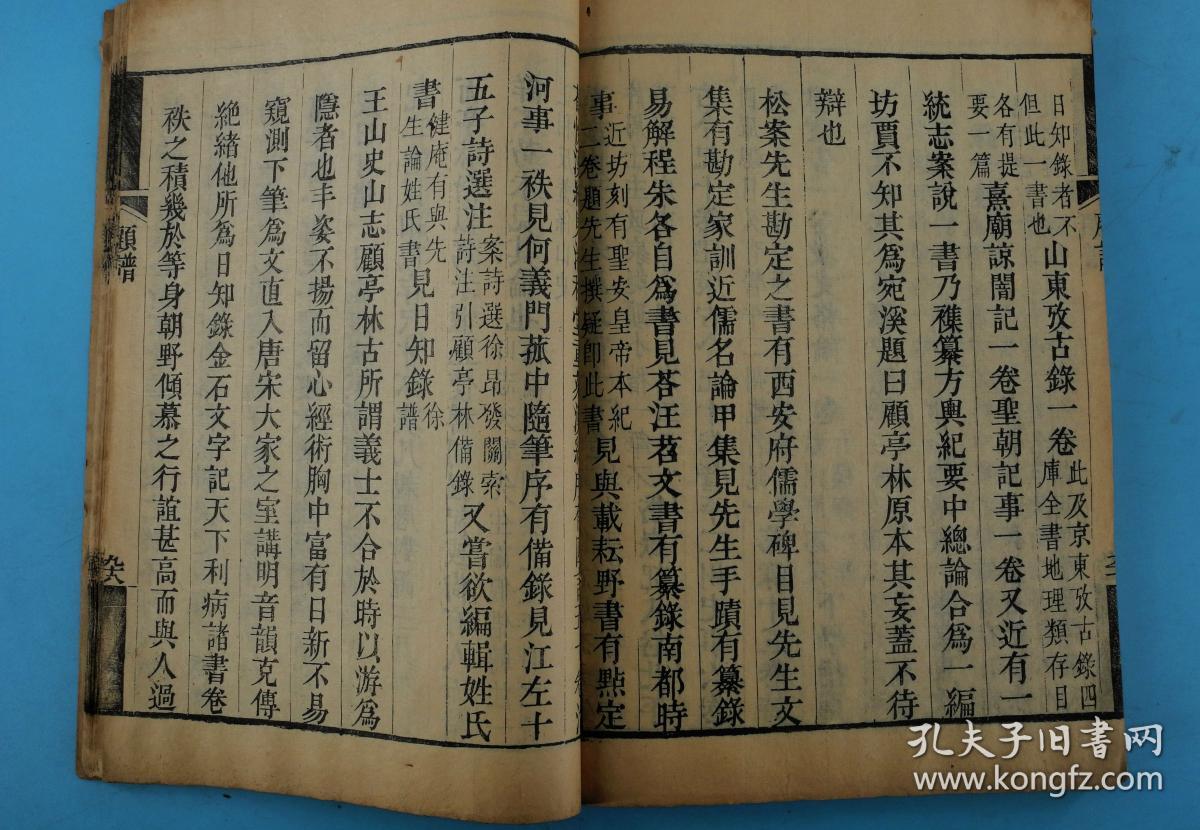 日知錄者不
但此一書也
山東攷古錄一卷
此及京東攷古錄四
庫全書地理類存目
各有提
要一篇
熹廟諒闇記一卷聖朝記事一卷又近有一
統志案說一書乃穕纂方輿紀要中總論合爲一編
坊賈不知其爲宛溪題曰顧亭林原本其妄蓋不待
辯也
松案先生勘定之書有西安府儒學碑目見先生文
集有勘定家訓近儒名論甲集見先生手蹟有纂錄
易解程朱各自爲書見荅汪苕文書有纂錄南都時
事
近坊刻有聖安皇帝本紀
二卷題先生撰疑卽此書
見與戴耘野書有㸃定
河事一袟見何義門菰中隨筆序有備錄見江左十
五子詩選注
案詩選徐昂發關索
詩注引顧亭林備錄
又嘗欲編輯姓氏
書
健庵有與先
生論姓氏書
見日知錄
徐
譜
王山史山志顧亭林古所謂義士不合於時以游爲
隱者也丰姿不揚而留心經術胸中富有日新不易
窺測下筆爲文直入唐宋大家之室講明音韻克傳
絕緒他所爲日知錄金石文字記天下利病諸書卷
袟之積幾於等身朝野傾慕之行誼甚高而與人過
顧譜
孔夫子旧書网
www.kongfz.com